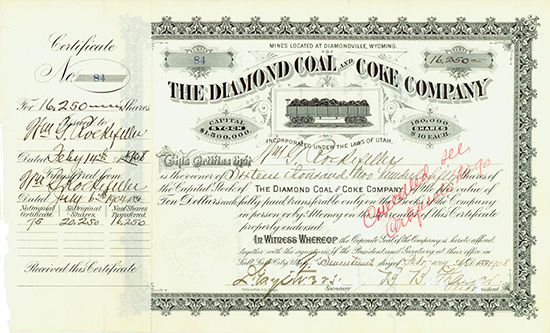 Certificate
No. 84
For 16,250 Shares
Issued to
Wm G. Rockefeller
Dated Feby 14th 1908
Wm G. Rockefeller
Dated July 6th 1904
No. Original Certificate. No. Original Shares. No. of Shares Transferred
75 20,250 16,250
Received this Certificate
MINES LOCATED AT DIAMONDVILLE, WYOMING.
84
16,250
THE DIAMOND COAL AND COKE COMPANY
CAPITAL STOCK $1,500,000
150,000 SHARES $10 EACH.
INCORPORATED UNDER THE LAWS OF UTAH.
This Certifies that Wm G. Rockefeller
is the owner of Sixteen thousand two hundred fifty Shares of
the Capital Stock of THE DIAMOND COAL AND COKE COMPANY of the par value of
Ten Dollars each, fully paid, transferable only on the Books of the Company
in person or by Attorney on the surrender of this Certificate
properly endorsed.
In Witness Whereof the Corporate Seal of the Company is hereto affixed,
together with the signatures of the President and Secretary at their office in
Salt Lake City, Utah day of A.D. 1908
Secretary President
Cancelled see
Certificate No. 90